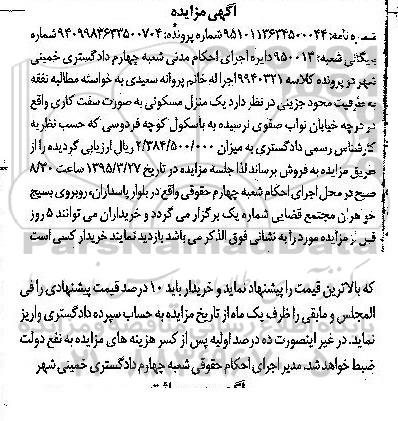 آگهی مزایده
شماره پرونده: ۹۴۰۹۹۸۳۶۳۳۵۰۰۷۰۴ شماره
بایگانی شعبه: ۹۵۰۰۱۳ دایره اجرای احکام مدنی شعبه چهارم دادگستری خمینی
شهر در پرونده کلاسه ۹۹۴۰۳۲۱ اجرا له خانم پروانه سعیدی به خواسته مطالبه نفقه
به طرفیت محود جزینی در نظر دارد یک منزل مسکونی به صورت سفت کاری واقع
در درچه خیابان نواب صفوی نرسیده به باسکول کوچه فردوسی که حسب نظریه
کارشناس رسمی دادگستری به میزان ۲/۳۸۴/۵۰۰/۰۰۰ ریال ارزیابی گردیده را از
طریق مزایده به فروش برساند لذا جلسه مزایده در تاریخ ۱۳۹۵/۳/۲۷ ساعت ۸/۳۰
صبح در محل اجرای احکام شعبه چهارم حقوقی واقع در بلوار پاسداران، روبروی بسیج
خواهران مجتمع قضایی شماره یک برگزار می گردد و خریداران می توانند ۵ روز
قبل از مزایده مورد را به نشانی فوق الذکر می باشد بازدید نمایند خریدار کسی است
که بالاترین قیمت را پیشنهاد نماید و خریدار باید ۱۰ درصد قیمت پیشنهادی را فی
المجلس و مابقی را ظرف یک ماه از تاریخ مزایده به حساب سپرده دادگستری واریز
نماید. در غیر اینصورت ده درصد اولیه پس از کسر هزینه های مزایده به نفع دولت
ضبط خواهد شد. مدیر اجرای احکام حقوقی شعبه چهارم دادگستری خمینی شهر